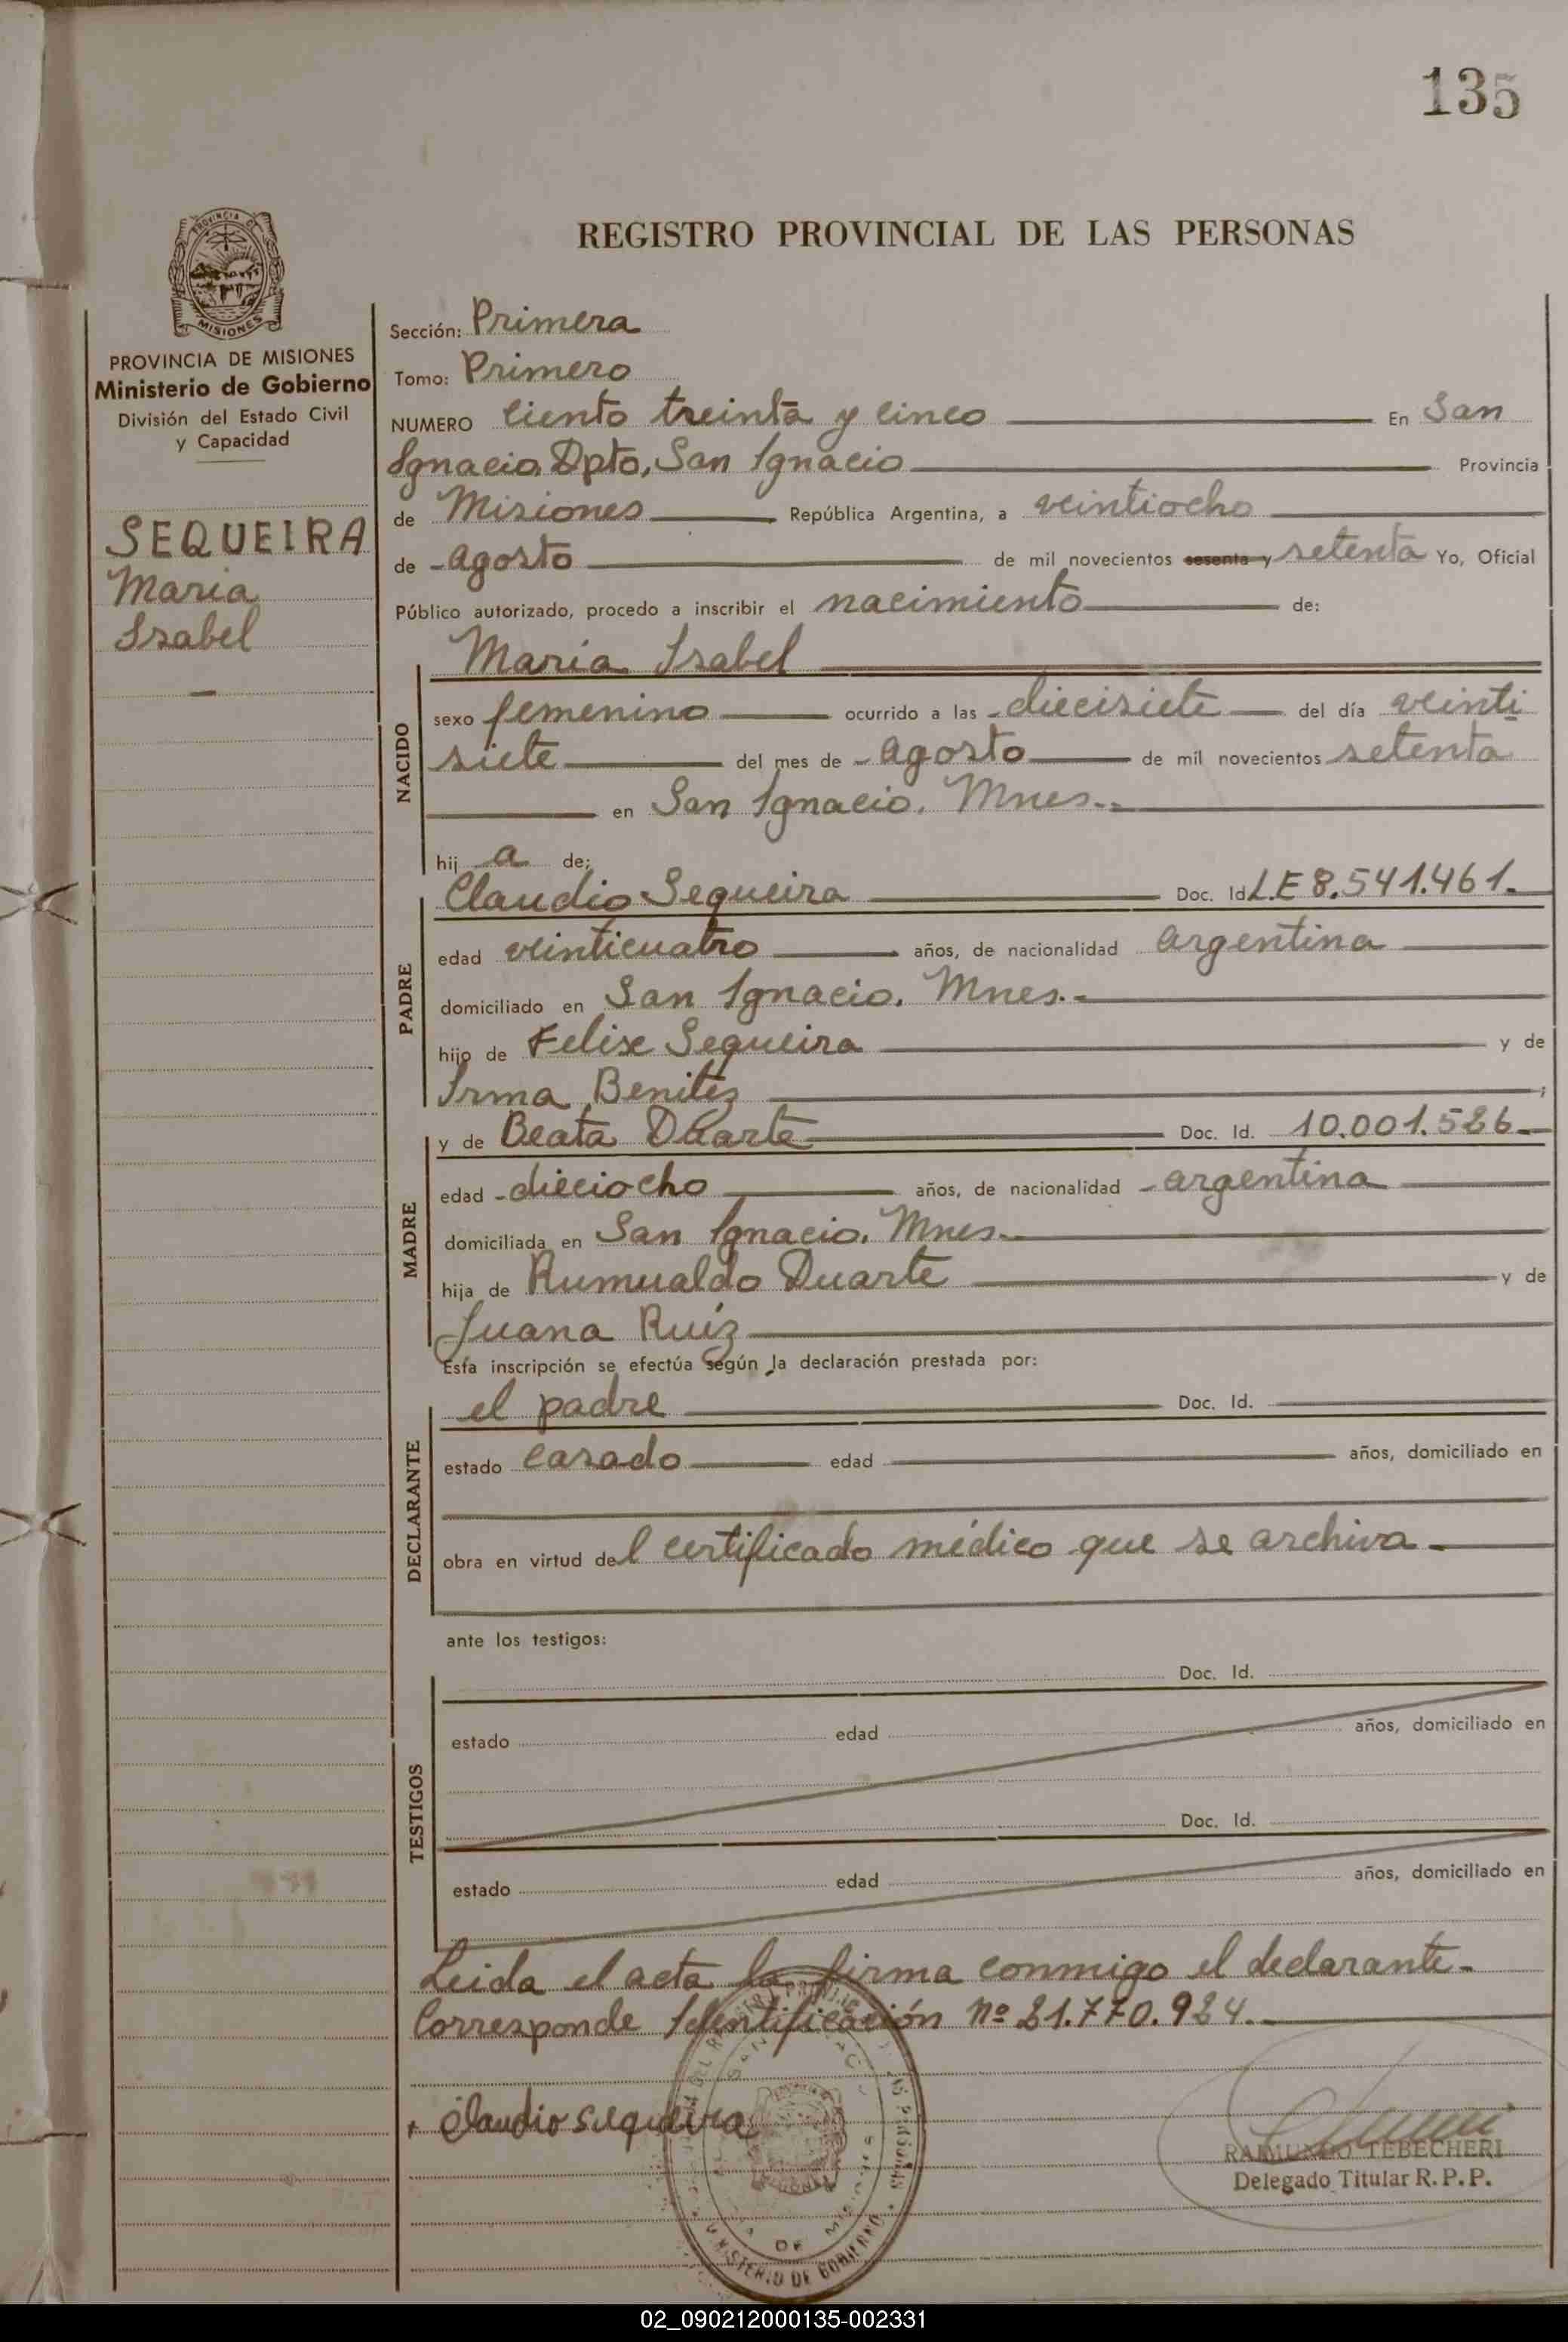 135
REGISTRO PROVINCIAL DE LAS PERSONAS
PROVINCIA DE
MISIONES
PROVINCIA DE MISIONES
Ministerio de Gobierno
División del Estado Civil
y Capacidad
SEQUEIRA
Maria
Isabel
Sección: Primera
Tomo: Primero
NUMERO Ciento treinta y cinco En San
Ignacio, Dpto, San Ignacio Provincia
de Misiones República Argentina, a veintiocho
de agosto de mil novecientos sesenta y setenta Yo, Oficial
Público autorizado, procedo a inscribir el nacimiento de:
NACIDO
Maria Isabel
sexo femenino ocurrido a las diecisiete del día veinti
siete del mes de agosto de mil novecientos setenta
en San Ignacio. Mnes.-
hij a de:
PADRE
Claudio Sequeira Doc. Id L.E 8.541.461.
edad veinticuatro años, de nacionalidad argentina
domiciliado en San Ignacio. Mnes.-
hijo de Felix Sequeira y de
Irma Benitez ;
MADRE
y de Beata Duarte Doc. Id. 10.001.526.
edad dieciocho años, de nacionalidad argentina
domiciliada en San Ignacio. Mnes.
hija de Rumualdo Duarte y de
Juana Ruíz
Esta inscripción se efectúa según la declaración prestada por:
DECLARANTE
el padre Doc. Id.
estado casado edad años, domiciliado en
obra en virtud del certificado médico que se archiva.
ante los testigos:
TESTIGOS
Doc. Id.
estado edad años, domiciliado en
Doc. Id.
estado edad años, domiciliado en
Leida el acta la firma conmigo el declarante.
Corresponde Identificación nº 21.770.924.
Claudio sequeira
MINISTERIO DE GOBIERNO
RAIMUNDO TEBECHERI
Delegado Titular R.P.P.
02_090212000135-002331